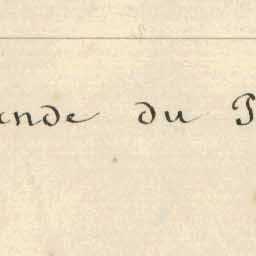 ande du P